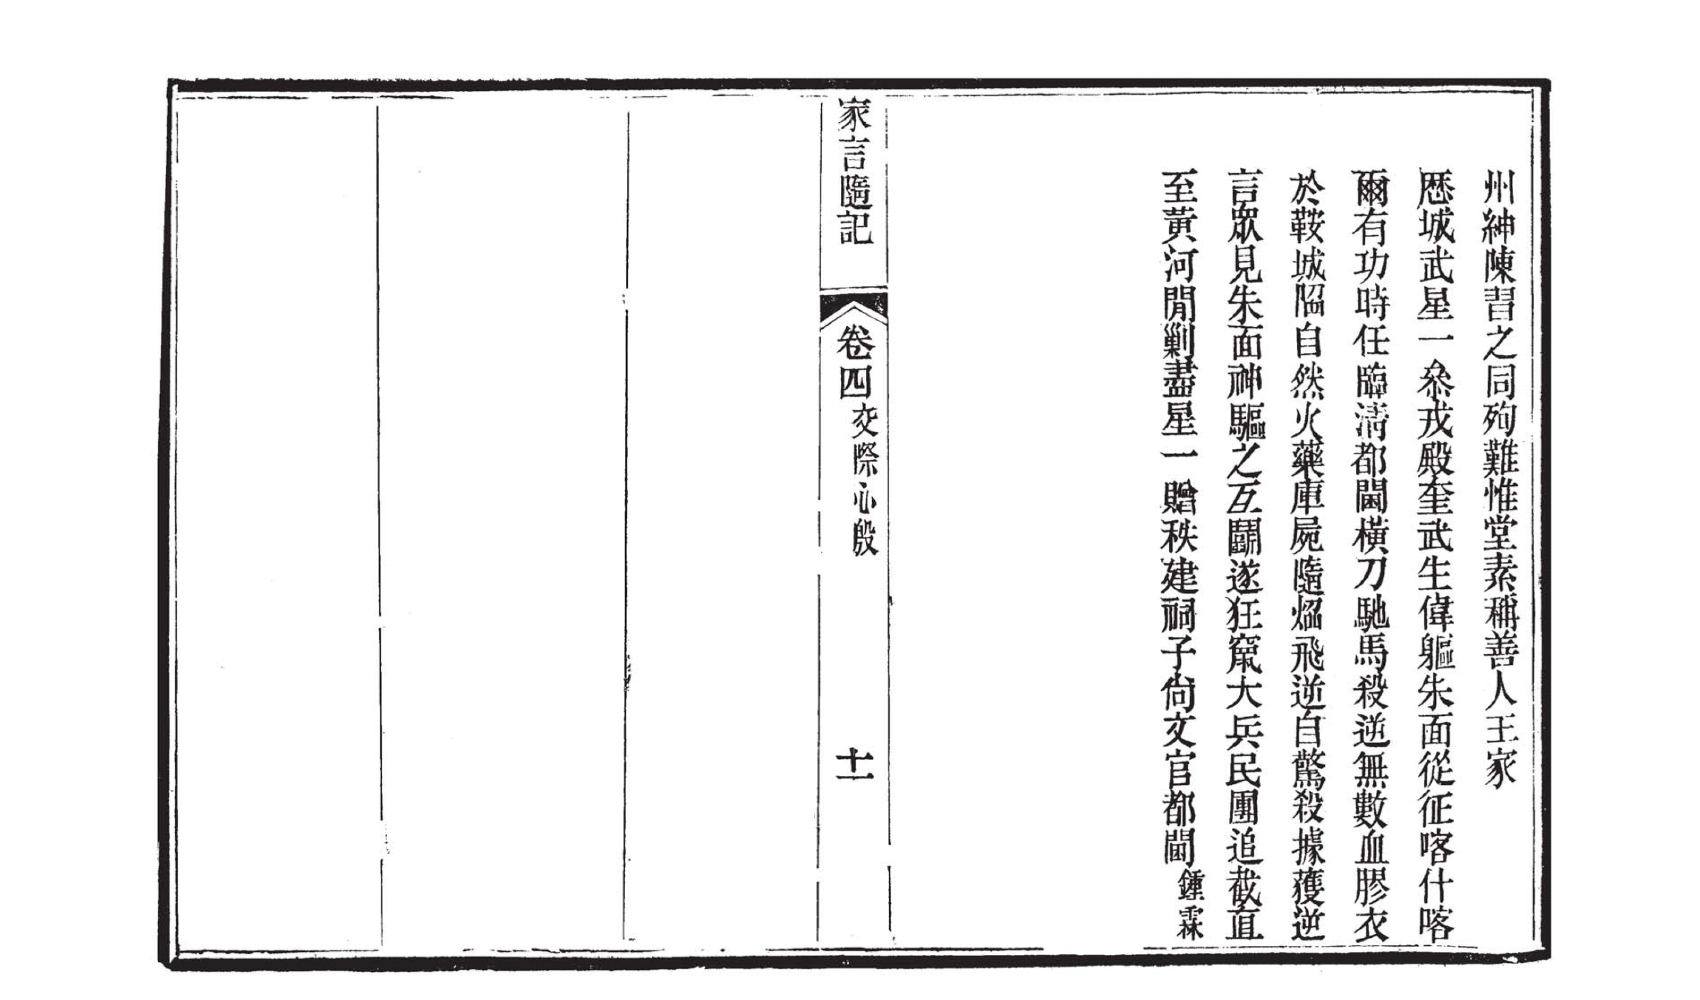 州紳陳習之同殉難惟堂素稱善人王家
歷城武星一叅戎殿奎武生偉軀朱面從征喀什喀
爾有功時任臨淸都閫橫刀馳馬殺逆無數血膠衣
於鞍城陷自然火藥庫屍隨焰飛逆自驚殺據獲逆
言眾見朱面神驅之互鬭遂狂竄大兵民團追截直
至黃河閒剿盡星一贈秩建祠子尙文官都閫鍾霖
家言隨記
卷四交際心殷
十一